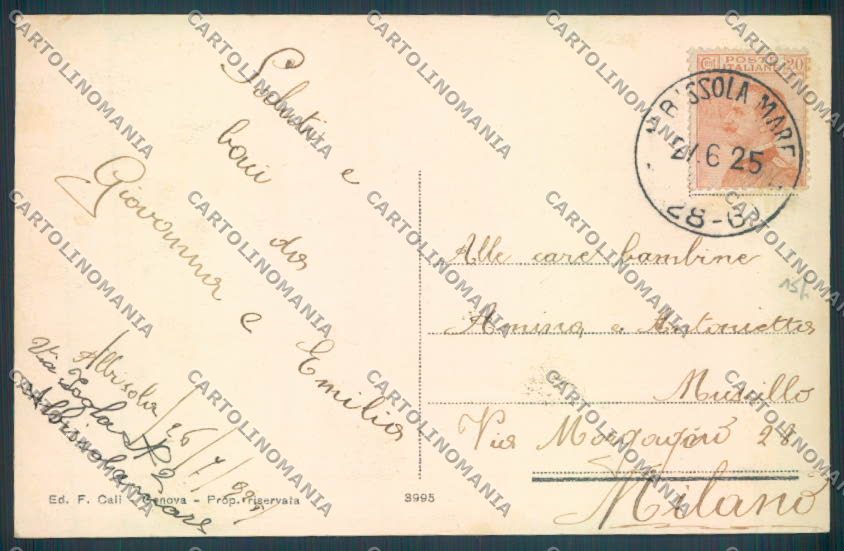 Saluti e
baci da
Giovanna e Emilia
Albisola 26/7/925
Via
N 2
Albissola mare
POSTE
ITALIANE
20
ALBISSOLA MARE
6 25
28-6
Alle care bambine
Amina e Antonietta
Murillo
Via Morgagni 28
Milano
Ed. F. Cali - Genova - Prop. riservata
3995
CARTOLINOMANIA